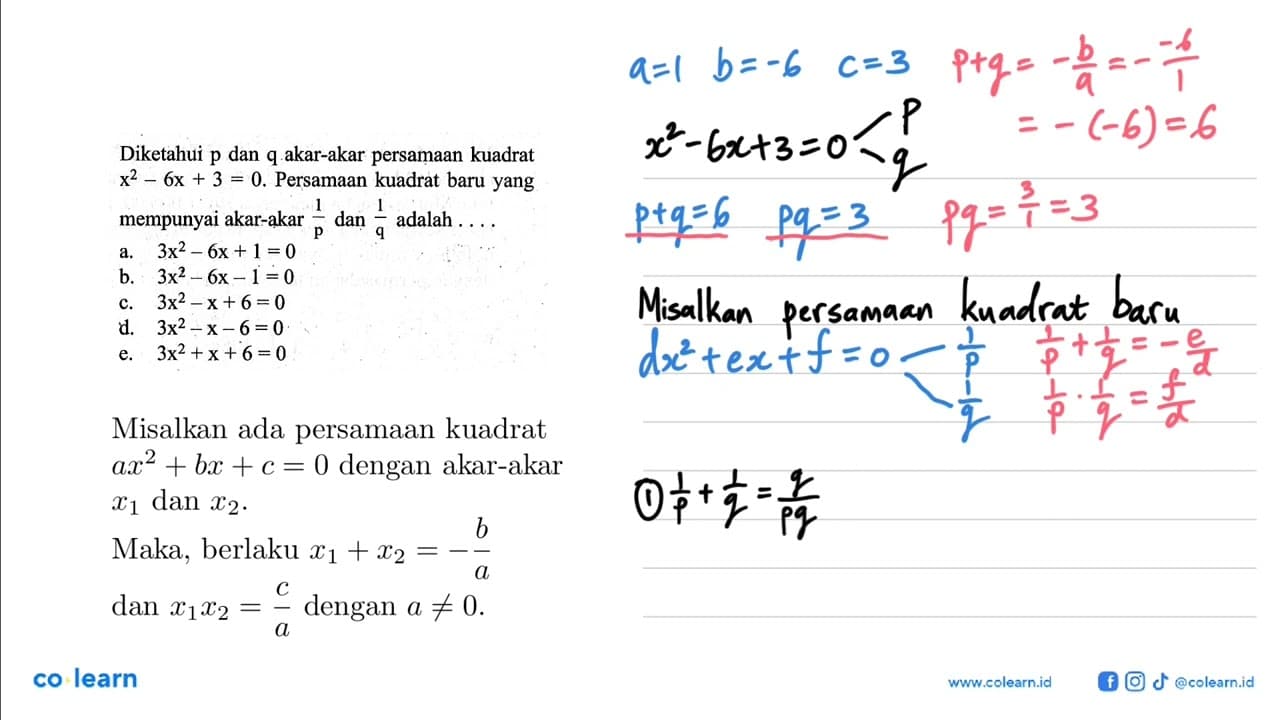 Diketahui p dan q akar-akar persamaan kuadrat
x² – 6x + 3 = 0. Persamaan kuadrat baru yang
mempunyai akar-akar 1/p dan 1/q adalah . . . .
a. 3x² – 6x + 1 = 0
b. 3x² – 6x – 1 = 0
c. 3x² – x + 6 = 0
d. 3x² – x – 6 = 0
e. 3x² + x + 6 = 0
Misalkan ada persamaan kuadrat
ax² + bx + c = 0 dengan akar-akar
x₁ dan x₂.
Maka, berlaku x₁ + x₂ = −b/a
dan x₁x₂ = c/a dengan a ≠ 0.
a=1 b=-6 c=3 p+q = -b/a = - -6/1
= -(-6)=6
x²-6x+3=0 p
q
p+q=6 pq=3 pq = 3/1 = 3
Misalkan persamaan kuadrat baru
dx²+ex+f=0 1/p 1/p + 1/q = -e/d
1/q 1/p · 1/q = f/d
① 1/p + 1/q = q/pq
co learn
www.colearn.id @colearn.id